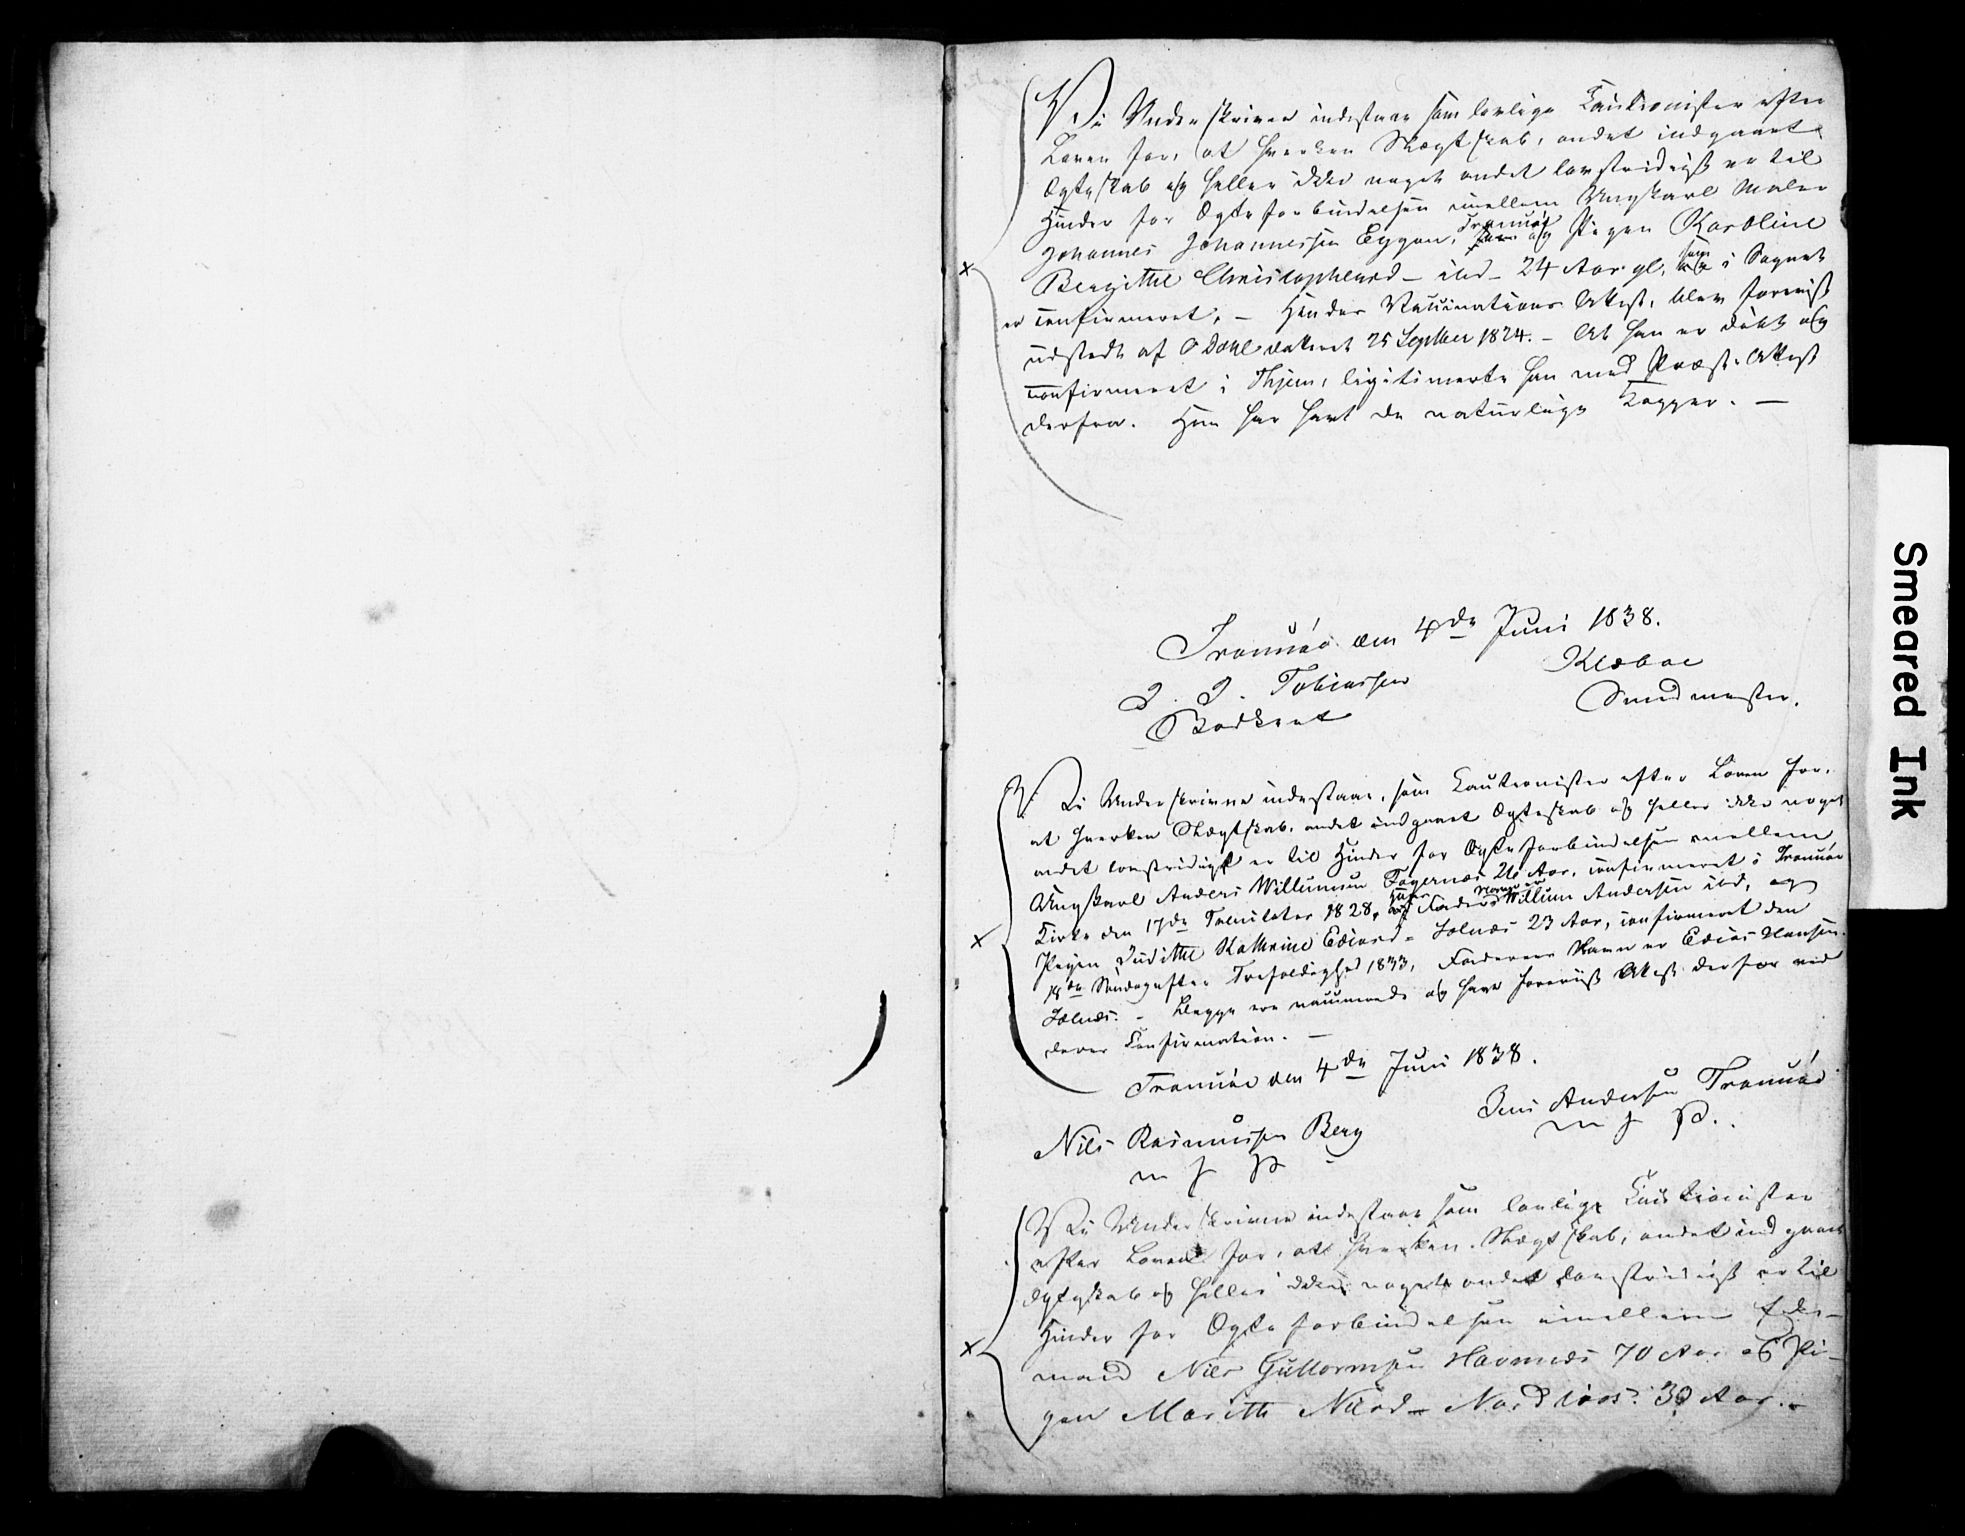 Vi Underskrevne indestaae som lovlige Kautionister efter
Loven for, at hverken Slægtskab, andet indgaaet
Ægteskab og heller ikke noget andet lovstridigt er til
Hinder for Ægteforbindelsen imellem Ungkarl Maler
Johannes Johannessen Eggen, Tromsøe og Pigen Karoline
Bergitte Christophersd – ibd – 24 Aar gl, som i Sognet
er confirmeret, – Hendes Vaccinations Attest, blev foreviist
udstedt af O Dahl dateret 25 Septber 1824. – At han er døbt og
confirmeret i Thjem, legitimerte han med Præste Attest
derfra. Hun har havt de naturlige Kopper. –
Tromsøe den 4de Juni 1838.
Klæboe
J. J. Tobiassen
Smedmester.
Vi Underskrivne indestaae, som Kautionister efter Loven for,
at hverken Slægtskab, andet indgaaet Ægteskab og heller ikke noget
andet lovstridigt er til Hinder for Ægteforbindelsen mellem
Ungkarl Anders Willumsen Fagernæs 26 Aar, confirmeret i Tromsøe
Kirke den 17de Trinitatis 1828, Hans Faders Navn er Willum Andersen ibd, og
Pigen Judithe Kathrine Eliasd – Solnæs 23 Aar, confirmeret den
18de Søndag efter Trefoldighed 1833, Faderens Navn er Elias Hansen
Solnæs. – Begge ere vaccinerede og have foreviist Attest derfor ved
deres Confirmation. –
Tromsøe den 4de Juni 1838.
Jens Andersen Tromsøe
m f P.
Niels Rasmussen Berg
m f P
Vi Underskrivne indestaae som lovlige Kautionister
efter Loven for, at hverken Slægtskab, andet indgaaet
Ægteskab og heller ikke noget andet lovstridigt er til
Hinder for Ægteforbindelsen imellem Enke-
mand Nils Guttormsen Havnnæs 70 Aar og Pi-
gen Marith Nilsd – Nordkios 30 Aar. –
Smeared Ink